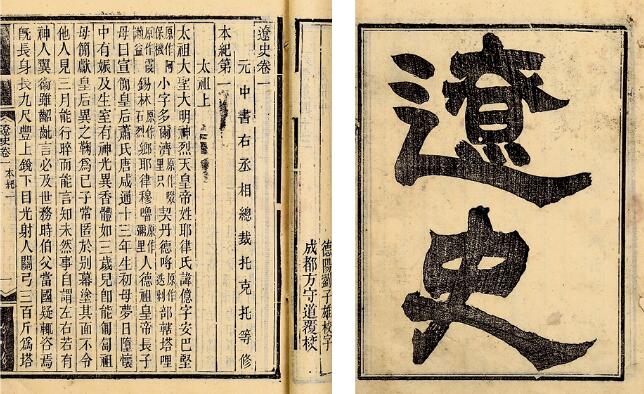 遼史
德陽劉子雄校字
成都方守道覆校
遼史卷一
元中書右丞相總裁托克托等修
本紀第一
太祖上
太祖大聖大明神烈天皇帝姓耶律氏諱億字安巴堅
原作阿保機小字多爾濟原作啜里只契丹德哷原作迭剌部轄塔哩
原作霞瀨益錫林原作石烈鄉耶律穆嚕原作彌里人德祖皇帝長子
母曰宣簡皇后蕭氏唐咸通十三年生初母夢日墮懷
中有娠及生室有神光異香體如三歲兒卽能匍匐祖
母簡獻皇后異之鞠爲已子常匿於別幕塗其面不令
他人見三月能行晬而能言知未然事自謂左右若有
神人翼衞雖齠齔言必及世務時伯父當國疑輒咨焉
旣長身長九尺豐上銳下目光射人關弓三百斤爲塔
遼史卷一 本紀一